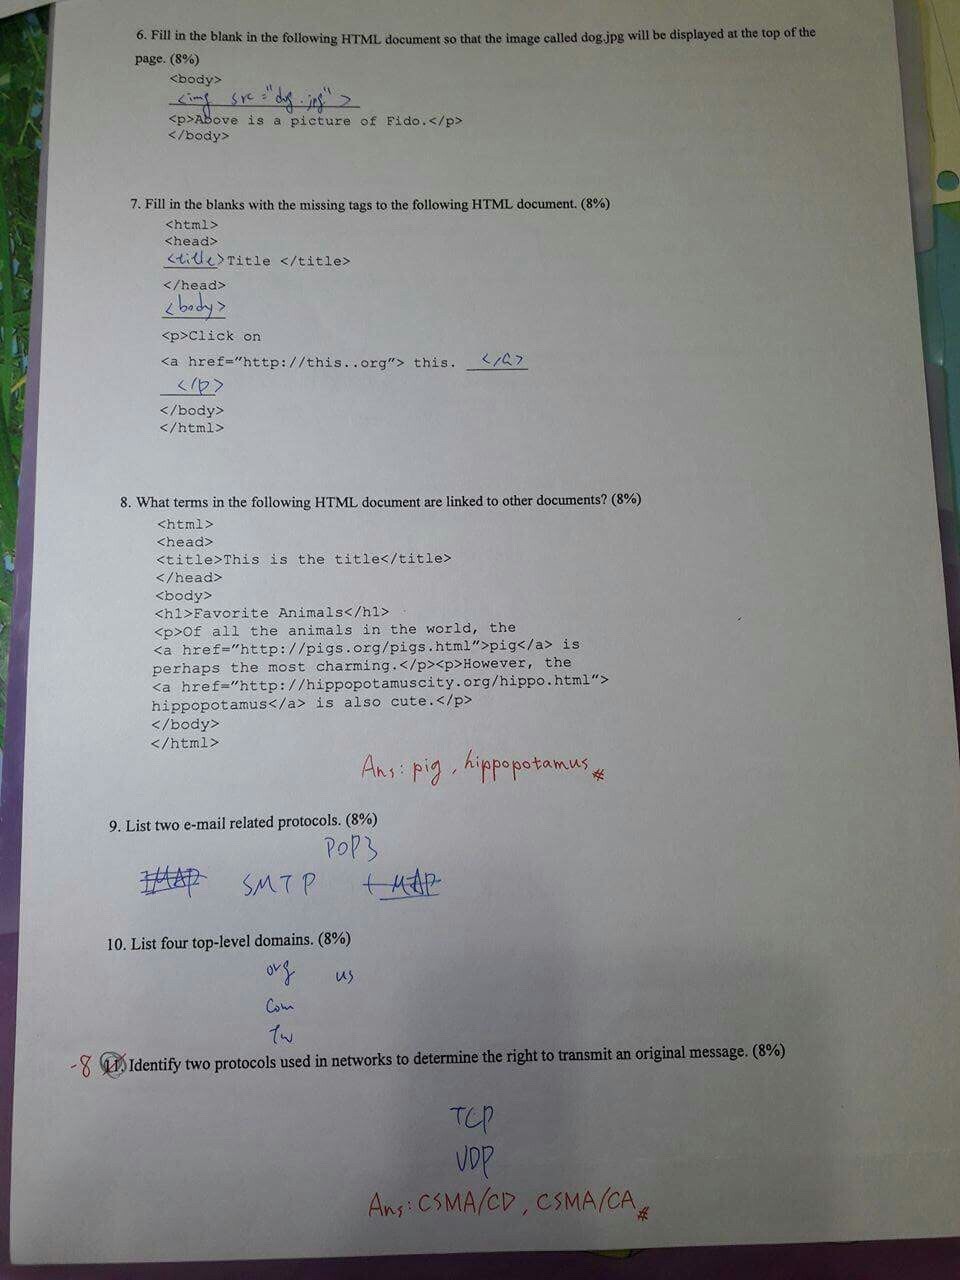 6. Fill in the blank in the following HTML document so that the image called dog.jpg will be displayed at the top of the
page. (8%)
<body>
<img src="dog.jpg">
<p>Above is a picture of Fido.</p>
</body>
7. Fill in the blanks with the missing tags to the following HTML document. (8%)
<html>
<head>
<title>Title </title>
</head>
<body>
<p>Click on
<a href="http://this..org"> this. </a>
</p>
</body>
</html>
8. What terms in the following HTML document are linked to other documents? (8%)
<html>
<head>
<title>This is the title</title>
</head>
<body>
<h1>Favorite Animals</h1>
<p>Of all the animals in the world, the
<a href="http://pigs.org/pigs.html">pig</a> is
perhaps the most charming.</p><p>However, the
<a href="http://hippopotamuscity.org/hippo.html">
hippopotamus</a> is also cute.</p>
</body>
</html>
Ans: pig, hippopotamus #
9. List two e-mail related protocols. (8%)
POP3
IMAP SMTP IMAP
10. List four top-level domains. (8%)
org us
com
tw
-8 11. Identify two protocols used in networks to determine the right to transmit an original message. (8%)
TCP
UDP
Ans: CSMA/CD, CSMA/CA #